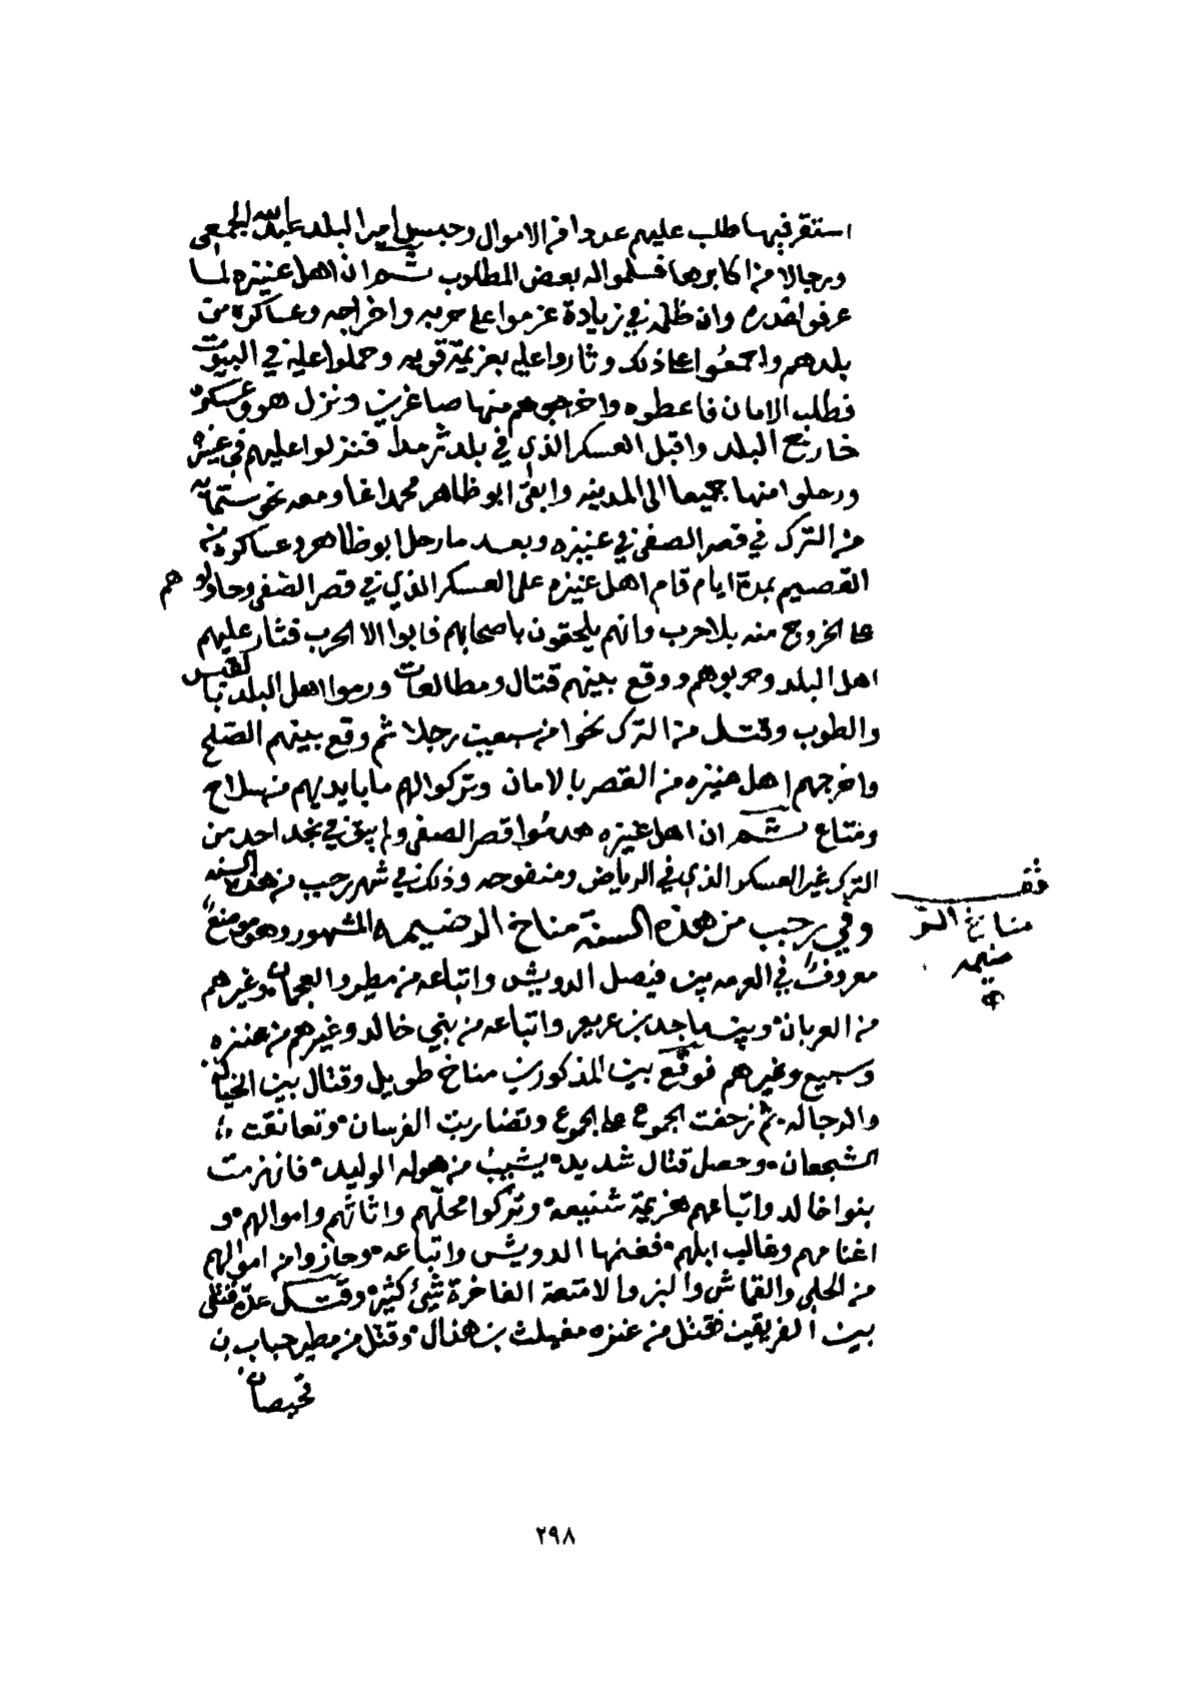 استقر فيها طلب عليهم عددا من الاموال وحبس امير البلد عبدالله الجمعى
ورجالا من اكابرها فسلموا له بعض المطلوب ثم ان اهل عنيزه لما
عرفوا قدره وان ظلمه في زيادة عزموا على حربه واخراجه وعساكره من
بلدهم واجمعوا على ذلك وثاروا عليه بعزيمة قويه وحملوا عليه في البيوت
فطلب الامان فاعطوه واخرجوهم منها صاغرين ونزل هو وعسكره
خارج البلد واقبل العسكر الذي في بلد ثرمدا فنزلوا عليهم في عنيزه
ورحلوا منها جميعا الى المدينه وابقى ابو ظاهر محمد اغا ومعه نحو ستمايه
من الترك في قصر الصفى في عنيزه وبعد ما رحل ابو ظاهر وعساكره من
القصيم بمدة ايام قام اهل عنيزه على العسكر الذي في قصر الصفى وحاولوهم
على الخروج منه بلا حرب وانهم يلحقون باصحابهم فابوا الا الحرب فثار عليهم
اهل البلد وحربوهم ووقع بينهم قتال ومطالعات ورموا اهل البلد بالقبس
والطوب وقتل من الترك نحوا من سبعين رجلا ثم وقع بينهم الصلح
واخرجهم اهل عنيزه من القصر بالامان وتركوا لهم ما بايديهم من سلاح
ومتاع ثم ان اهل عنيزه هدموا قصر الصفى ولم يبق في نجد احد من
الترك غير العسكر الذي في الرياض ومنفوحه وذلك في شهر رجب من هذه السنه
وفي رجب من هذه السنة مناخ الرضيمه المشهور وهو موضع
معروف في العرمه بين فيصل الدويش واتباعه من مطير والعجمان وغيرهم
من العربان وبين ماجد بن عريعر واتباعه من بني خالد وغيرهم من عنزه
وسبيع وغيرهم فوقع بين المذكورين مناخ طويل وقتال بين الخياله
والرجاله ثم زحفت الجموع على الجموع وتضاربت الفرسان وتعانقت
الشجعان وحصل قتال شديد يشيب من هوله الوليد فانهزمت
بنوا خالد واتباعهم هزيمة شنيعه وتركوا محلهم واثاثهم واموالهم و
اغنامهم وغالب ابلهم فغنمها الدويش واتباعه وحازوا من اموالهم
من الحلى والقماش والبز والامتعة الفاخرة شئ كثير وقتل عدة قتلى
بين الفريقين فقتل من عنزه مغيليث بن هذال وقتل من مطير حباب بن
قحيصان
قف
مناخ الر
ضيمه
٢٩٨